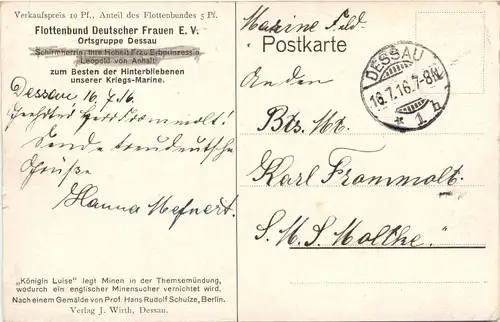 Verkaufspreis 10 Pf., Anteil des Flottenbundes 5 Pf.
Flottenbund Deutscher Frauen E. V.
Ortsgruppe Dessau
Schirmherrin: Ihre Hoheit Frau Erbprinzessin
Leopold von Anhalt
zum Besten der Hinterbliebenen
unserer Kriegs-Marine.
Dessau 16.7.16.
Geehrter Herr Frommolt!
Sende treudeutsche
Grüße
Hanna Mefnert.
„Königin Luise" legt Minen in der Themsemündung,
wodurch ein englischer Minensucher vernichtet wird.
Nach einem Gemälde von Prof. Hans Rudolf Schulze, Berlin.
Verlag J. Wirth, Dessau.
Marine Feld-
Postkarte
DESSAU
16.7.16.7-8N.
* 1 h
An den
Bts. Mt.
Karl Frommolt.
S. M. S. Moltke."